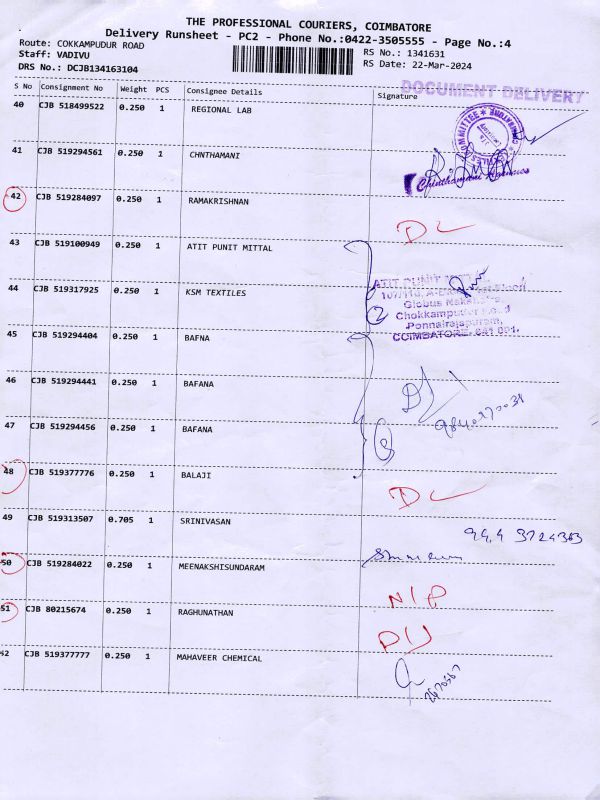 THE PROFESSIONAL COURIERS, COIMBATORE
Delivery Runsheet - PC2 - Phone No.:0422-3505555 - Page No.:4
Route: COKKAMPUDUR ROAD
Staff: VADIVU
DRS No.: DCJB134163104
RS No.: 1341631
RS Date: 22-Mar-2024
DOCUMENT DELIVERY
S No Consignment No Weight PCS Consignee Details Signature
40 CJB 518499522 0.250 1 REGIONAL LAB
41 CJB 519294561 0.250 1 CHNTHAMANI
42 CJB 519284097 0.250 1 RAMAKRISHNAN
DL
43 CJB 519100949 0.250 1 ATIT PUNIT MITTAL
44 CJB 519317925 0.250 1 KSM TEXTILES
ATIT PUNIT
Globus
Chokkamputer Road
Ponnairajapuram,
COIMBATORE - 641 001.
2
45 CJB 519294404 0.250 1 BAFNA
46 CJB 519294441 0.250 1 BAFANA
47 CJB 519294456 0.250 1 BAFANA
48 CJB 519377776 0.250 1 BALAJI
DL
49 CJB 519313507 0.705 1 SRINIVASAN
50 CJB 519284022 0.250 1 MEENAKSHISUNDARAM
N/P
51 CJB 80215674 0.250 1 RAGHUNATHAN
D/J
52 CJB 519377777 0.250 1 MAHAVEER CHEMICAL